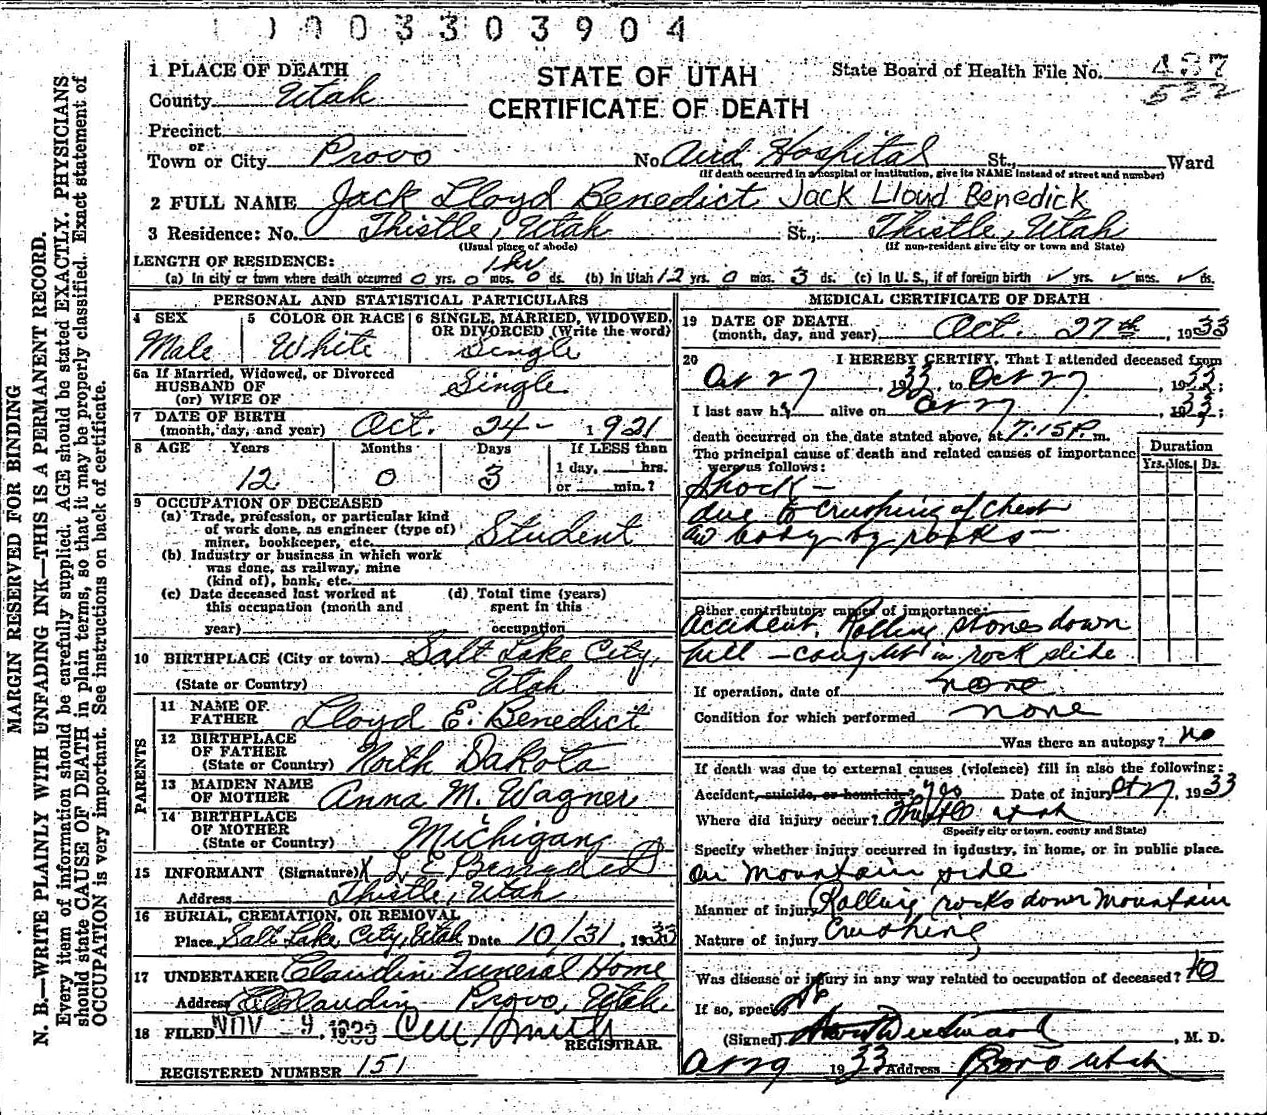 0003303904
1 PLACE OF DEATH
STATE OF UTAH
CERTIFICATE OF DEATH
State Board of Health File No. 487
522
County Utah
Precinct
or
Town or City Provo No. Aird Hospital St., Ward
(If death occurred in a hospital or institution, give its NAME instead of street and number)
2 FULL NAME Jack Lloyd Benedict Jack Lloyd Benedick
3 Residence: No. Thistle, Utah St., Thistle, Utah
(Usual place of abode) (If non-resident give city or town and State)
LENGTH OF RESIDENCE: 1 hr
(a) In city or town where death occurred 0 yrs. 0 mos. 0 ds. (b) In Utah 12 yrs. 0 mos. 3 ds. (c) In U. S., if of foreign birth ✓ yrs. ✓ mos. ✓ ds.
PERSONAL AND STATISTICAL PARTICULARS
4 SEX Male
5 COLOR OR RACE White
6 SINGLE, MARRIED, WIDOWED, OR DIVORCED (Write the word) Single
6a If Married, Widowed, or Divorced
HUSBAND OF
(or) WIFE OF Single
7 DATE OF BIRTH
(month, day, and year) Oct. 24 - 1921
8 AGE Years Months Days If LESS than
12 0 3 1 day, hrs.
or min.?
9 OCCUPATION OF DECEASED
(a) Trade, profession, or particular kind
of work done, as engineer (type of)
miner, bookkeeper, etc. Student
(b) Industry or business in which work
was done, as railway, mine
(kind of), bank, etc.
(c) Date deceased last worked at
this occupation (month and
year)
(d) Total time (years)
spent in this
occupation
10 BIRTHPLACE (City or town) Salt Lake City,
(State or Country) Utah
PARENTS
11 NAME OF
FATHER Lloyd E. Benedict
12 BIRTHPLACE
OF FATHER
(State or Country) North Dakota
13 MAIDEN NAME
OF MOTHER Anna M. Wagner
14 BIRTHPLACE
OF MOTHER
(State or Country) Michigan
15 INFORMANT (Signature) X L E Benedict
Address Thistle, Utah
16 BURIAL, CREMATION, OR REMOVAL
Place Salt Lake City, Utah Date 10/31, 1933
17 UNDERTAKER Claudin Funeral Home
Address Claudin Provo, Utah
18 FILED NOV -9 1933
REGISTRAR.
REGISTERED NUMBER 151
MEDICAL CERTIFICATE OF DEATH
19 DATE OF DEATH
(month, day, and year) Oct. 27th, 1933
20 I HEREBY CERTIFY, That I attended deceased from
Oct 27, 1933, to Oct 27, 1933;
I last saw h alive on Oct 27, 1933;
death occurred on the date stated above, at 7:15 P. m.
The principal cause of death and related causes of importance
were as follows:
Duration
Yrs. Mos. Ds.
Shock -
due to crushing of chest
and body by rocks -
Other contributory causes of importance:
Accident. Rolling stones down
hill - caught in rock slide
If operation, date of none
Condition for which performed none
Was there an autopsy? no
If death was due to external causes (violence) fill in also the following:
Accident, suicide, or homicide? yes Date of injury Oct 27, 1933
Where did injury occur? Thistle Utah
(Specify city or town, county and State)
Specify whether injury occurred in industry, in home, or in public place.
On mountain side
Manner of injury Rolling rocks down mountain
Nature of injury Crushing
Was disease or injury in any way related to occupation of deceased? No
If so, specify No
(Signed) , M. D.
1933 Address Provo Utah
MARGIN RESERVED FOR BINDING
N. B.—WRITE PLAINLY WITH UNFADING INK—THIS IS A PERMANENT RECORD.
Every item of information should be carefully supplied. AGE should be stated EXACTLY. PHYSICIANS
should state CAUSE OF DEATH in plain terms, so that it may be properly classified. Exact statement of
OCCUPATION is very important. See instructions on back of certificate.